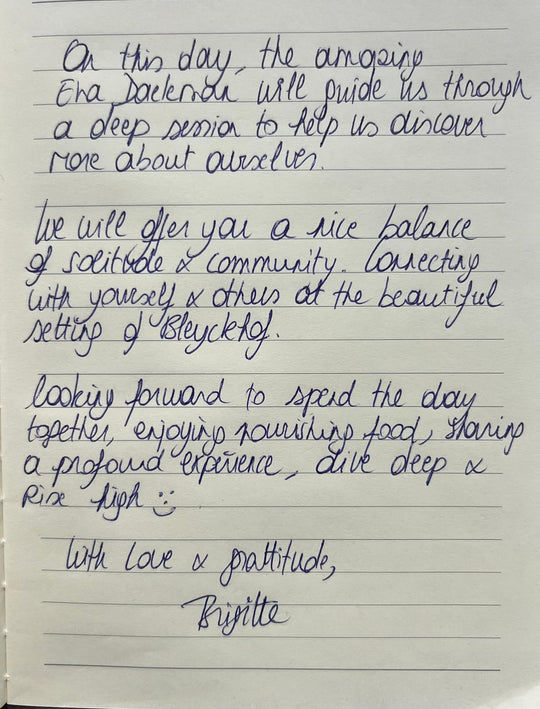 On this day, the amazing
Eva Daeleman will guide us through
a deep session to help us discover
more about ourselves.
We will offer you a nice balance
of solitude & community. Connecting
with yourself & others at the beautiful
setting of Bleyckhof.
Looking forward to spend the day
together, enjoying nourishing food, sharing
a profound experience, dive deep &
Rise high :)
With love & grattitude,
Brigitte